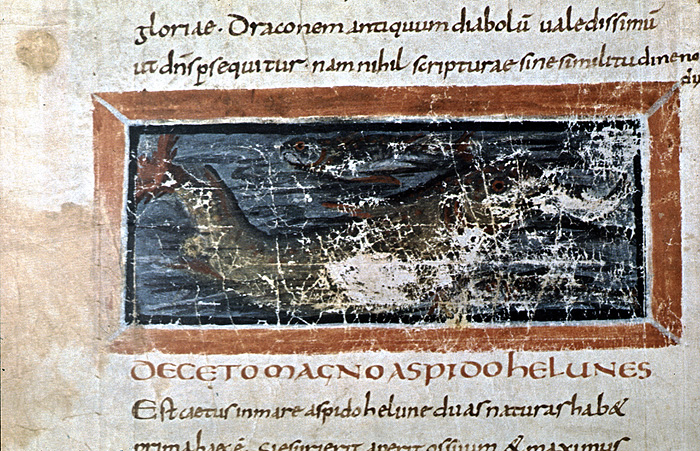 gloriae. Draconem antiquum diabolū ualedissimū
ut dn̄s persequitur. nam nihil scripturae sine similitudine no
du
DE CETO MAGNO ASPIDOHELUNES
Est caetus in mare aspidohelune duas naturas hab&
prima haec ē. si esurierit aperit os suum & maximus